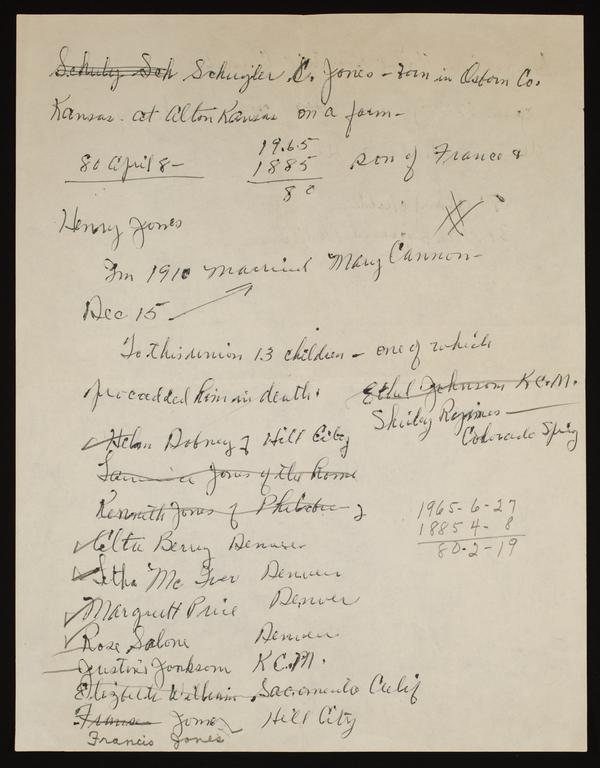 Schuyler C. Jones - Born in Osborn Co.
Kansas. at Alton Kansas on a farm -
80 April 8 - 19.6.5 son of France &
1885
80
Henry Jones
In 1910 married Mary Cannon -
Dec 15
To this union 13 children - one of which
proceedded him in death.
Ethel Johnson K.C.M.
Shirley
Colorado Sprig
Helen Dabney of Hill City
Jones of the home
Kenneth Jones of
Berry Denver
Letha Mc Iver Denver
Margrett Price Denver
Rose Salone Denver
Justine Jonkson K.C.M.
Elizabeth William, Sacramento Calif
Jones Hill City
Francis Jones
1965-6-27
1885 4-8
80-2-19